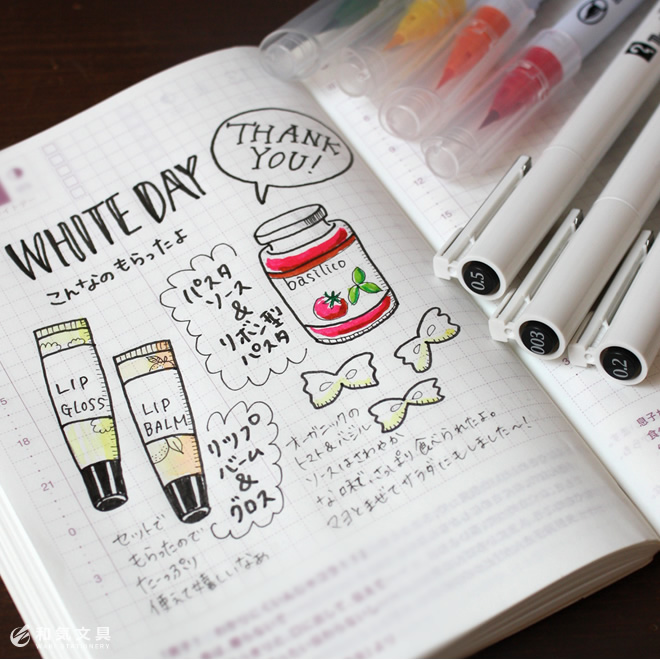 THANK
YOU!
WHITE DAY
こんなのもらったよ
パスタ
ソース
&
リボン型
パスタ
basilico
LIP
GLOSS
LIP
BALM
リップ
バーム
&
グロス
オーガニックの
トマト&バジル
ソースはさわやか
な味で、さっぱり食べられたよ。
マヨとまぜてサラダにもしました〜!
セットで
もらったので
たーっぷり
使えて嬉しいなぁ
0.5
003
0.2
2
9
12
15
18
21
0
3
和気文具